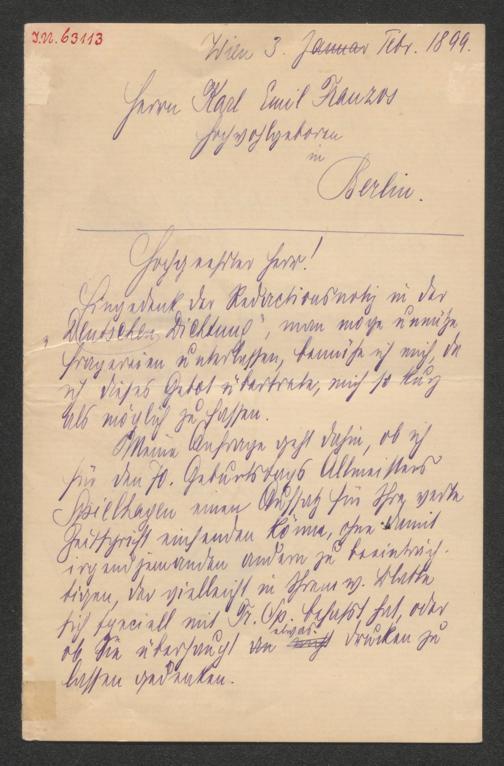 I.N. 63113
Wien 3. Januar Febr. 1899.
Herrn Karl Emil Franzos
Hochwohlgeboren
in
Berlin.
Hochgeehrter Herr!
Eingedenk der Redactionsnotiz in der
„Deutschen Dichtung", man möge unnütze
Fragereien unterlassen, bemühe ich mich, da
ich dieses Gebot übertrete, mich so kurz
als möglich zu fassen.
Meine Anfrage geht dahin, ob ich
für den 70. Geburtstag Altmeisters
Spielhagen einen Aufsatz für Ihre werte
Zeitschrift einsenden könne, ohne damit
irgend jemanden andern zu beeinträch-
tigen, der vielleicht in Ihrem w. Blatte
sich speciell mit Fr. Sp. befasst hat, oder
ob Sie überhaupt etwas drucken zu
lassen gedenken.